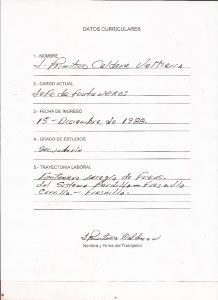 DATOS CURRICULARES
1.- NOMBRE
J. Primitivo Caldera Valtierra
2.- CARGO ACTUAL
Jefe de fontaneros
3.- FECHA DE INGRESO
15 - Diciembre de 1988.
4.- GRADO DE ESTUDIOS
Secundaria
5.- TRAYECTORIA LABORAL
Fontanero arreglo de Fugas.
del Sistema Pardillo - Fresnillo
Carrillo. - Fresnillo.
J Primitivo Caldera V
Nombre y Firma del Trabajador